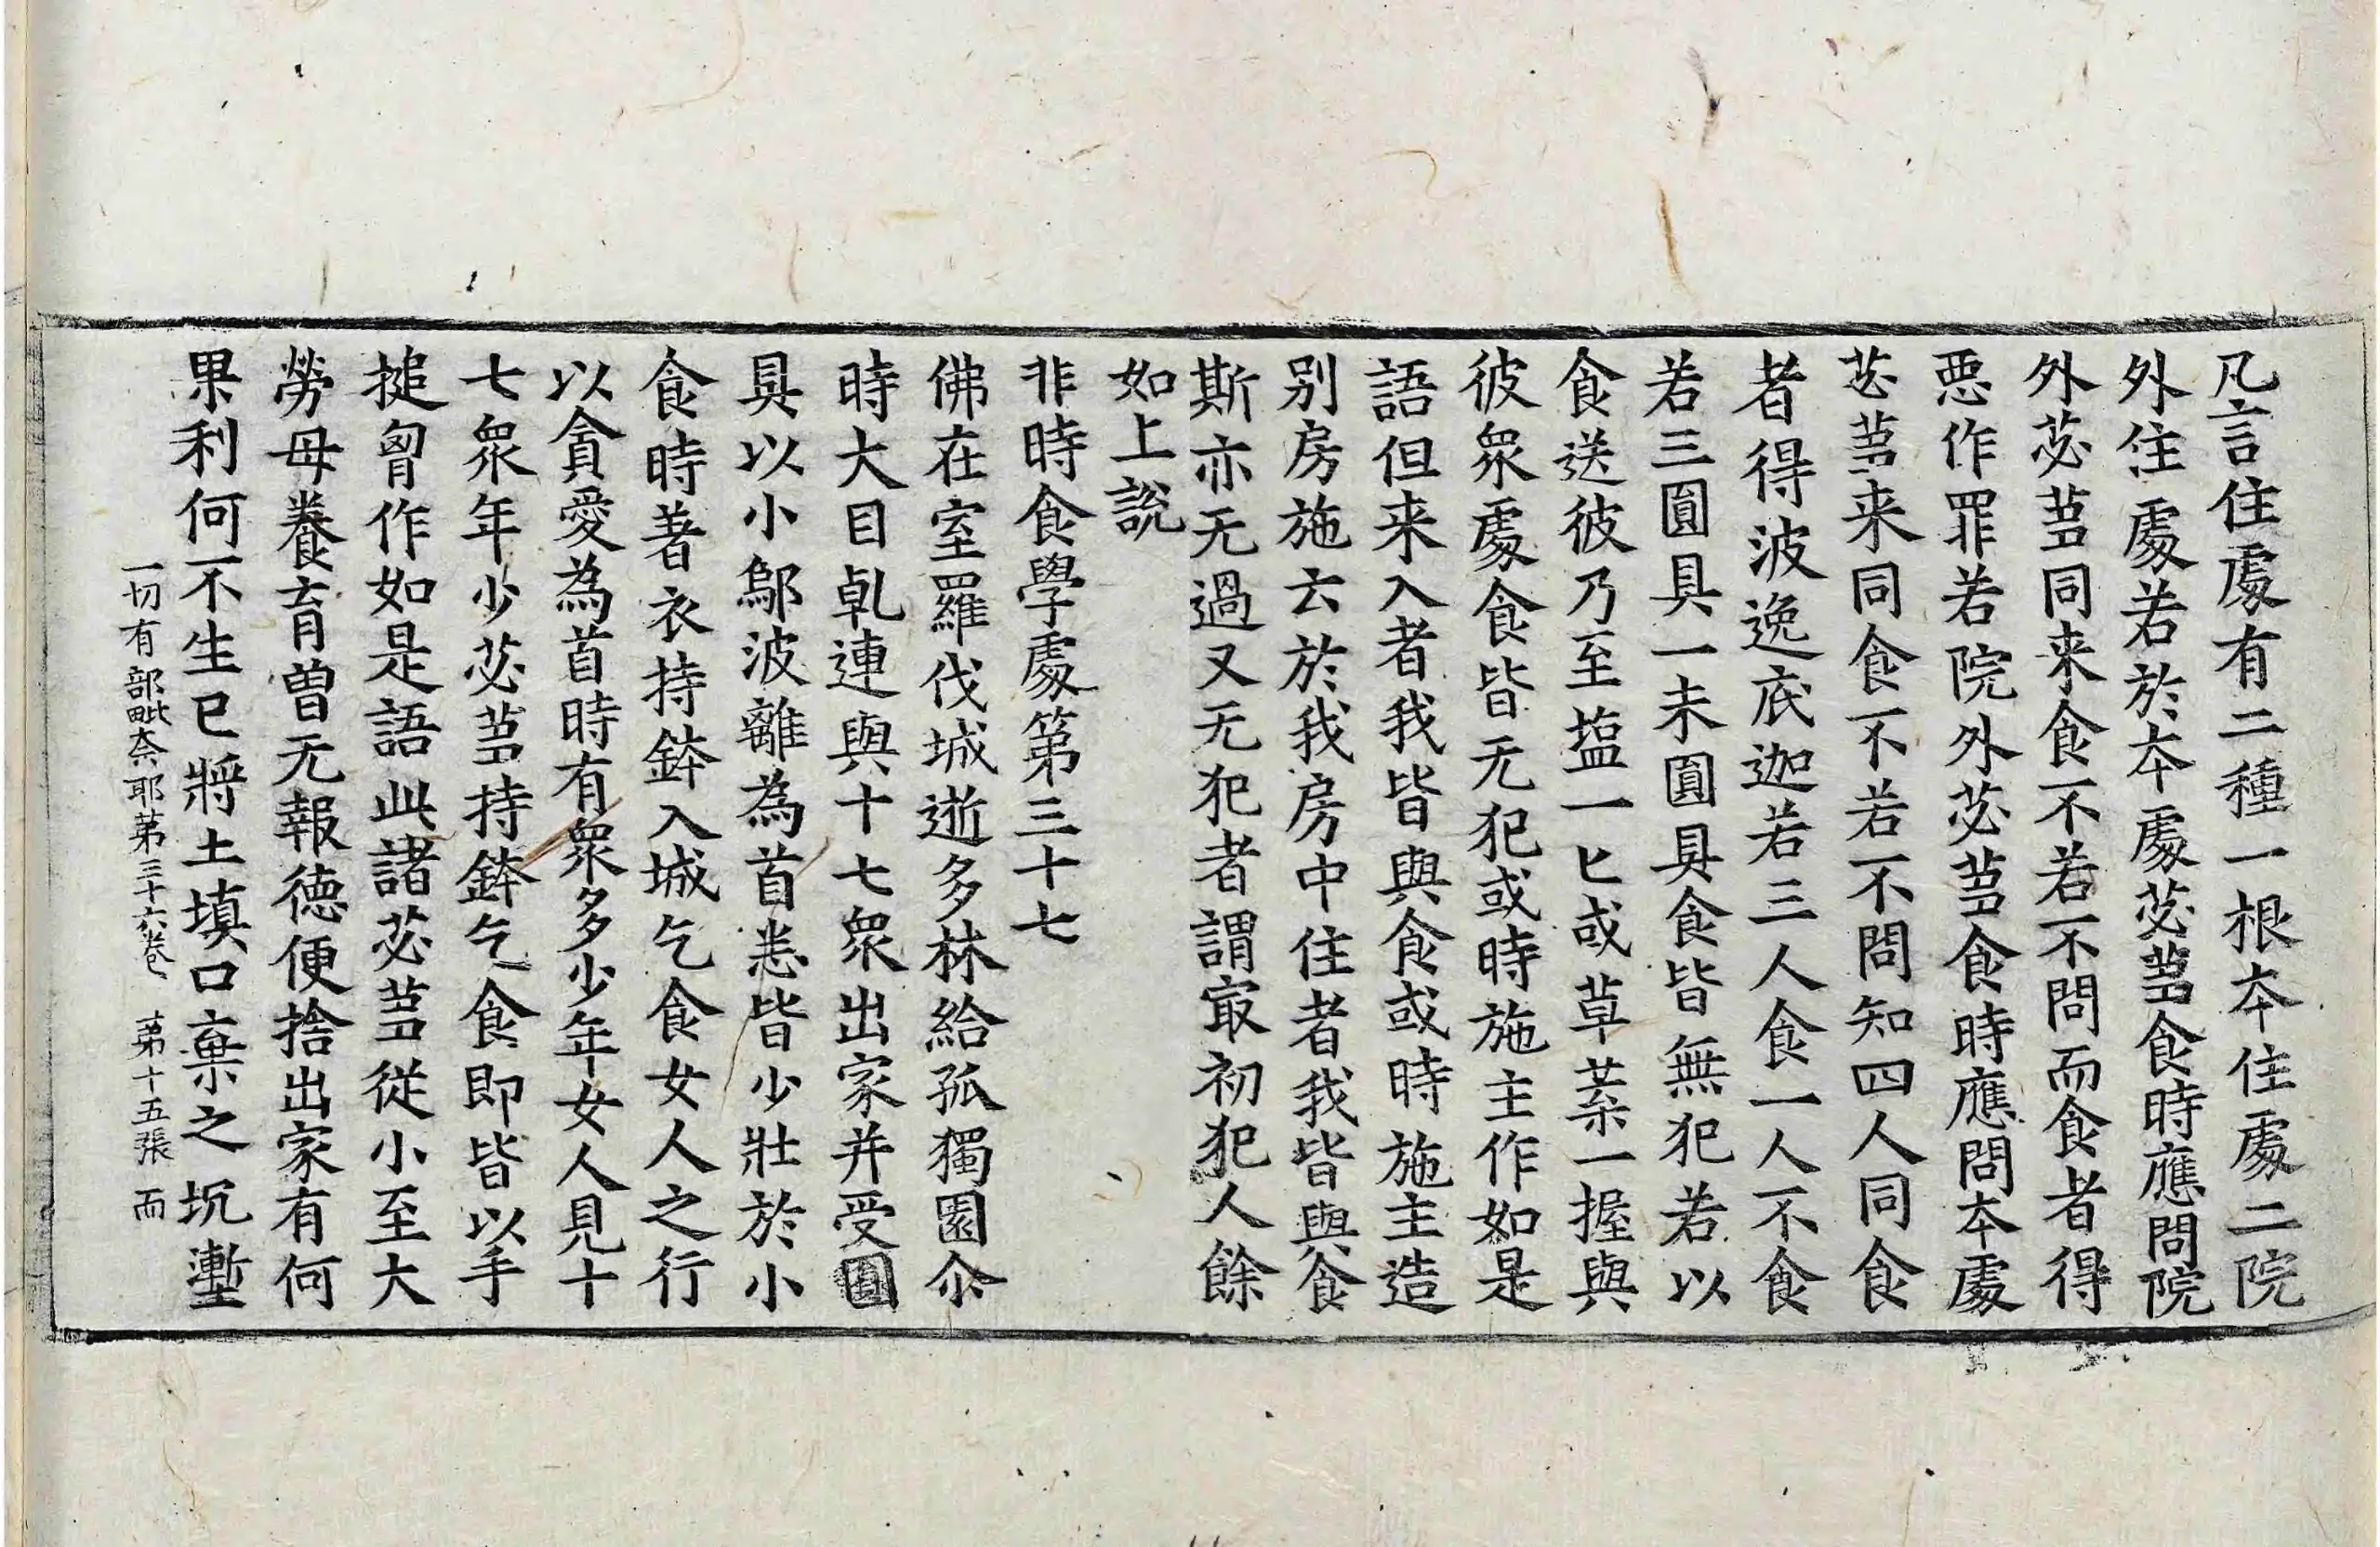 凡言住處有二種一根本住處二院
外住處若於本處苾芻食時應問院
外苾芻同来食不若不問而食者得
惡作罪若院外苾芻食時應問本處
苾芻来同食不若不問知四人同食
者得波逸底迦若三人食一人不食
若三圓具一未圓具食皆無犯若以
食送彼乃至塩一匕或草菜一握與
彼衆處食皆无犯或時施主作如是
語但来入者我皆與食或時施主造
别房施云於我房中住者我皆與食
斯亦无過又无犯者謂㝡初犯人餘
如上說
非時食學處第三十七
佛在室羅伐城逝多林給孤獨園尒
時大目乹連與十七衆出家并受圓
具以小鄔波離為首悉皆少壯於小
食時著衣持鉢入城乞食女人之行
以貪愛為首時有衆多少年女人見十
七衆年少苾芻持鉢乞食即皆以手
搥胷作如是語此諸苾芻從小至大
勞母養育曾无報德便捨出家有何
果利何不生已將土填口棄之坑壍
一切有部毗奈耶苐三十六卷 苐十五張 而